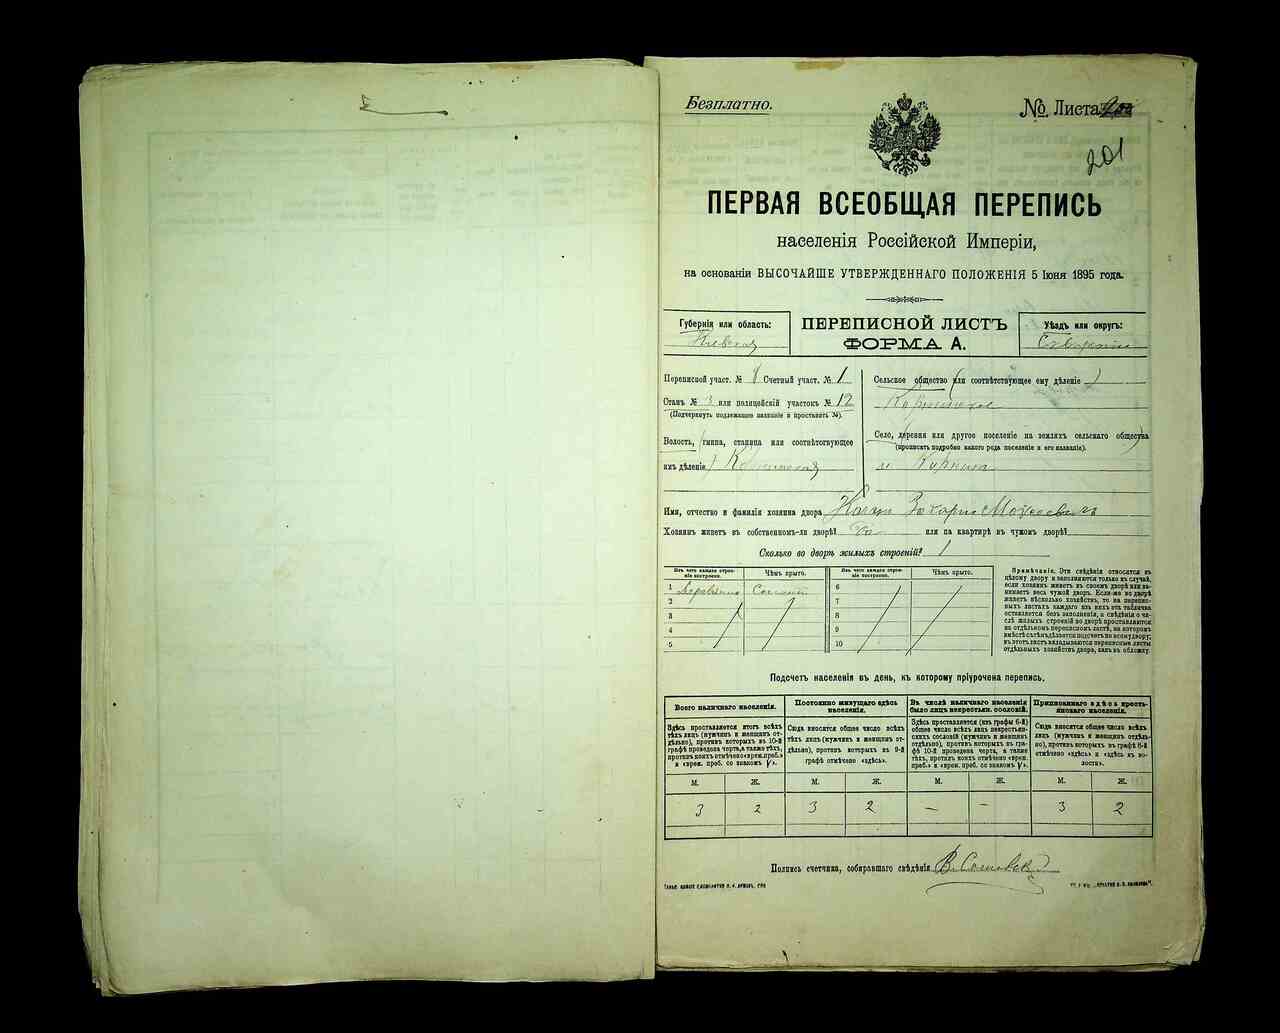 Безплатно.
№ Листа
201
ПЕРВАЯ ВСЕОБЩАЯ ПЕРЕПИСЬ
населенія Россійской Имперіи,
на основаніи ВЫСОЧАЙШЕ УТВЕРЖДЕННАГО ПОЛОЖЕНІЯ 5 Іюня 1895 года.
Губернія или область:
Кіевская
ПЕРЕПИСНОЙ ЛИСТЪ
ФОРМА А.
Уѣздъ или округъ:
Переписной участ. № 8 Счетный участ. № 1
Станъ № 3 или полицейскій участокъ № 12
(Подчеркнуть подлежащее названіе и проставить №).
Волость, (гмина, станица или соотвѣтствующее
имъ дѣленіе)
Сельское общество (или соотвѣтствующее ему дѣленіе)
Село, (деревня или другое поселеніе на земляхъ сельскаго общества)
(прописать подробно какого рода поселеніе и его названіе).
м. Корнинъ
Имя, отчество и фамилія хозяина двора Захарій Моѵсеевичъ
Хозяинъ живетъ въ собственномъ-ли дворѣ? да или на квартирѣ въ чужомъ дворѣ?
Сколько во дворѣ жилыхъ строеній? 1
Изъ чего каждое строеніе построено.
Чѣмъ крыто.
Изъ чего каждое строеніе построено.
Чѣмъ крыто.
1 Деревянное Соломой 6
2 7
3 8
4 9
5 10
Примѣчаніе. Эти свѣдѣнія относятся къ
цѣлому двору и заполняются только въ случаѣ,
если хозяинъ живетъ въ своемъ дворѣ или занимаетъ
весь чужой дворъ. Если-же во дворѣ
живетъ нѣсколько хозяйствъ, то на переписныхъ
листахъ каждаго изъ нихъ эта табличка
оставляется безъ заполненія, а свѣдѣнія о числѣ
жилыхъ строеній во дворѣ проставляются
на отдѣльномъ переписномъ листѣ, на которомъ
вмѣстѣ съ тѣмъ дѣлается подсчетъ по всему двору;
въ этотъ листъ вкладываются переписные листы
отдѣльныхъ хозяйствъ двора, какъ въ обложку.
Подсчетъ населенія въ день, къ которому пріурочена перепись.
Всего наличнаго населенія.
Здѣсь проставляется итогъ всѣхъ
тѣхъ лицъ (мужчинъ и женщинъ отдѣльно),
противъ которыхъ въ 10-й
графѣ проведена черта, а также тѣхъ,
противъ коихъ отмѣчено «врем. преб.»
и «врем. преб. со знакомъ V».
Постоянно живущаго здѣсь
населенія.
Сюда вносятся общее число всѣхъ
тѣхъ лицъ (мужчинъ и женщинъ отдѣльно),
противъ которыхъ въ 9-й
графѣ отмѣчено «здѣсь».
Въ числѣ наличнаго населенія
было лицъ некрестьян. сословій.
Здѣсь проставляется (изъ графы 6-й)
общее число всѣхъ лицъ некрестьянскихъ
сословій (мужчинъ и женщинъ
отдѣльно), противъ которыхъ въ графѣ
10-й проведена черта, а также
тѣхъ, противъ коихъ отмѣчено «врем.
преб.» и «врем. преб. со знакомъ V».
Приписаннаго здѣсь крестьянскаго
населенія.
Сюда вносятся общее число всѣхъ
лицъ (мужчинъ и женщинъ отдѣльно),
противъ которыхъ въ графѣ 8-й
отмѣчено «здѣсь» и «здѣсь въ волости».
М. Ж. М. Ж. М. Ж. М. Ж.
3 2 3 2 – – 3 2
Подпись счетчика, собиравшаго свѣдѣнія